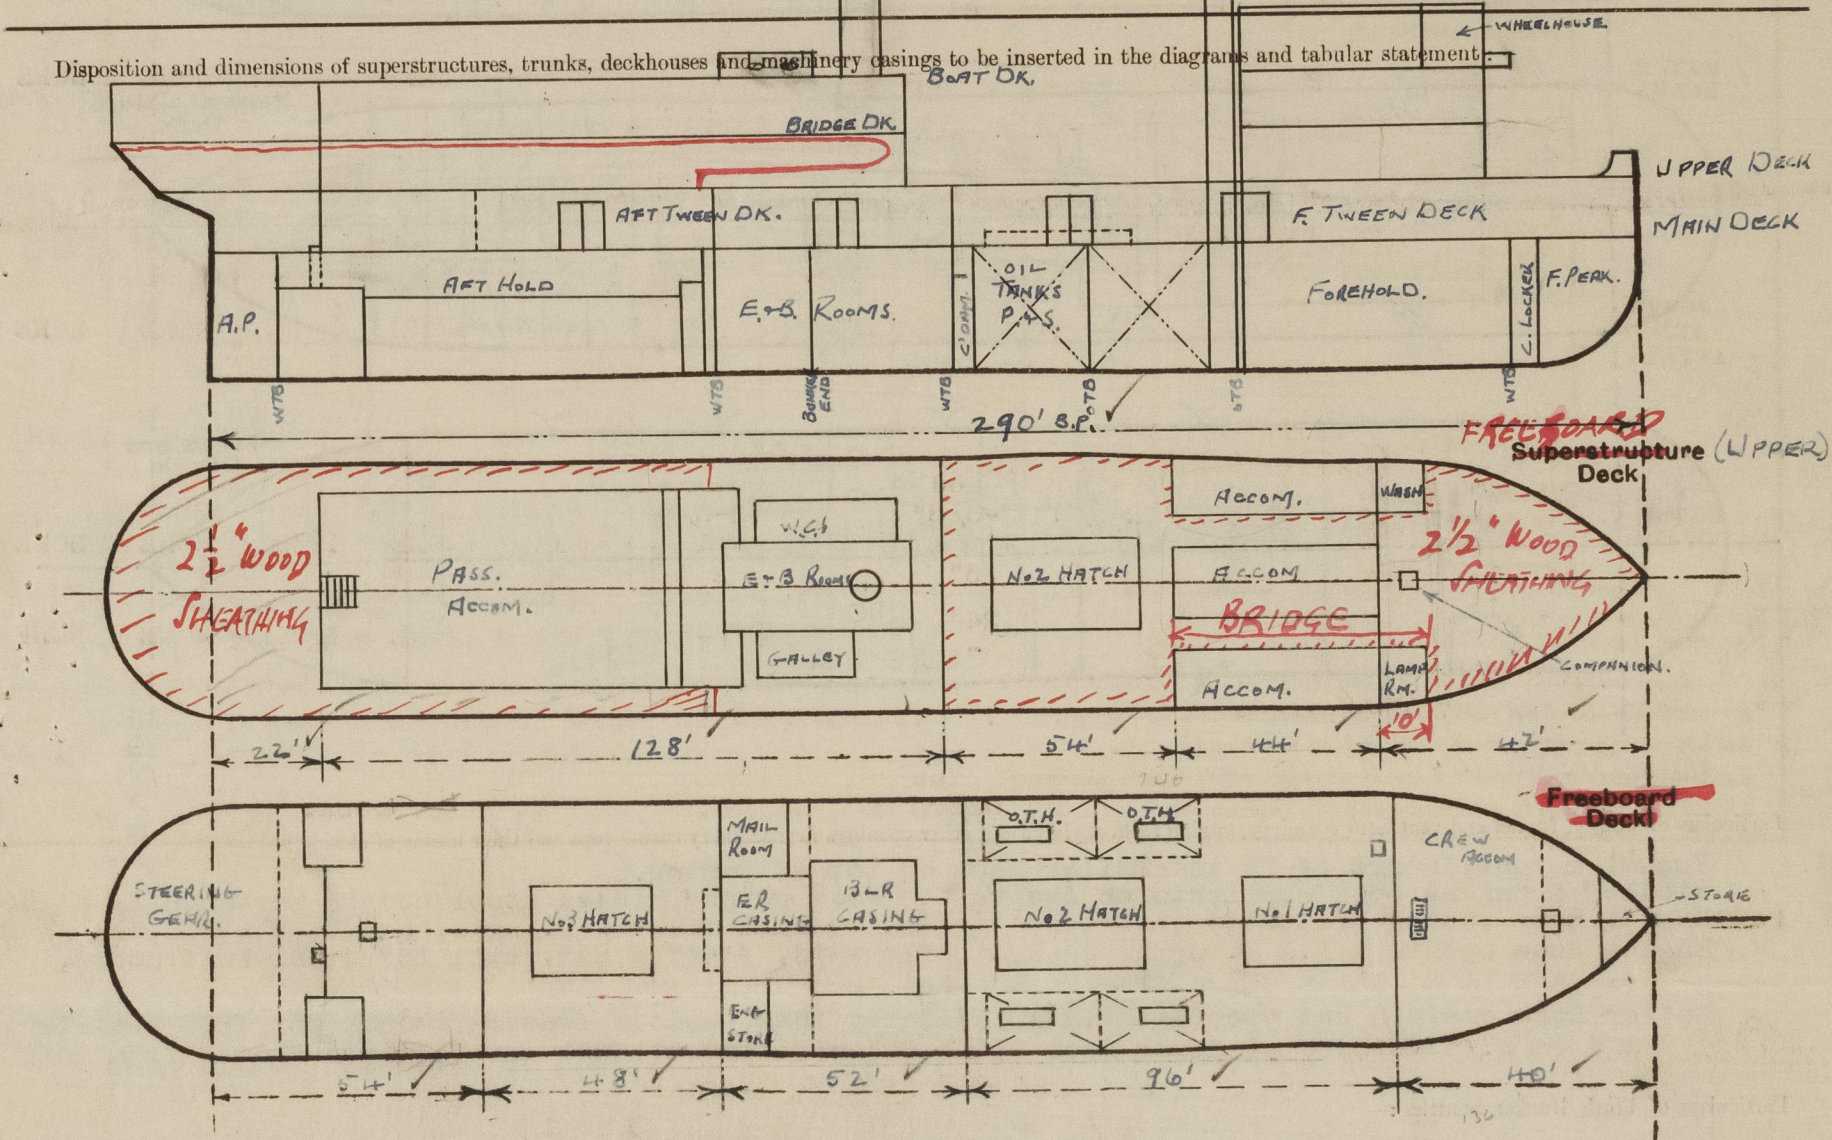 WHEELHOUSE
Disposition and dimensions of superstructures, trunks, deckhouses and machinery casings to be inserted in the diagrams and tabular statement:
BOAT DK.
BRIDGE DK.
UPPER DECK
AFT TWEEN DK.
F. TWEEN DECK
MAIN DECK
A.P.
AFT HOLD
E.&B. ROOMS.
C'DAM.
OIL
TANKS
P.&S.
FOREHOLD.
C. LOCKER
F. PEAK.
WTB
WTB
BUNKER
END
WTB
OTB
OTB
WTB
290' B.P.
FREEBOARD
Superstructure (UPPER)
Deck
2½" WOOD
SHEATHING
PASS.
ACCOM.
W.Cs
E+B ROOMS
GALLEY
No.2 HATCH
ACCOM.
WASH
ACCOM
BRIDGE
ACCOM.
LAMP
RM.
2½" WOOD
SHEATHING
COMPANION.
10'
22'
128'
54'
44'
42'
Freeboard
Deck
STEERING
GEAR.
No.3 HATCH
MAIL
ROOM
ER
CASING
ENG
STORE
BLR
CASING
O.T.H.
O.T.H.
No.2 HATCH
No.1 HATCH
CREW
ACCOM
STORE
54'
48'
52'
96'
40'